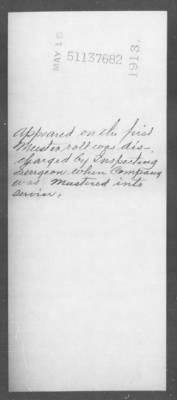 MAY 15
51137682
1913.
Appeared on the first
Muster roll was dis-
charged by Inspecting
Surgeon when Company
was mustered into
service.